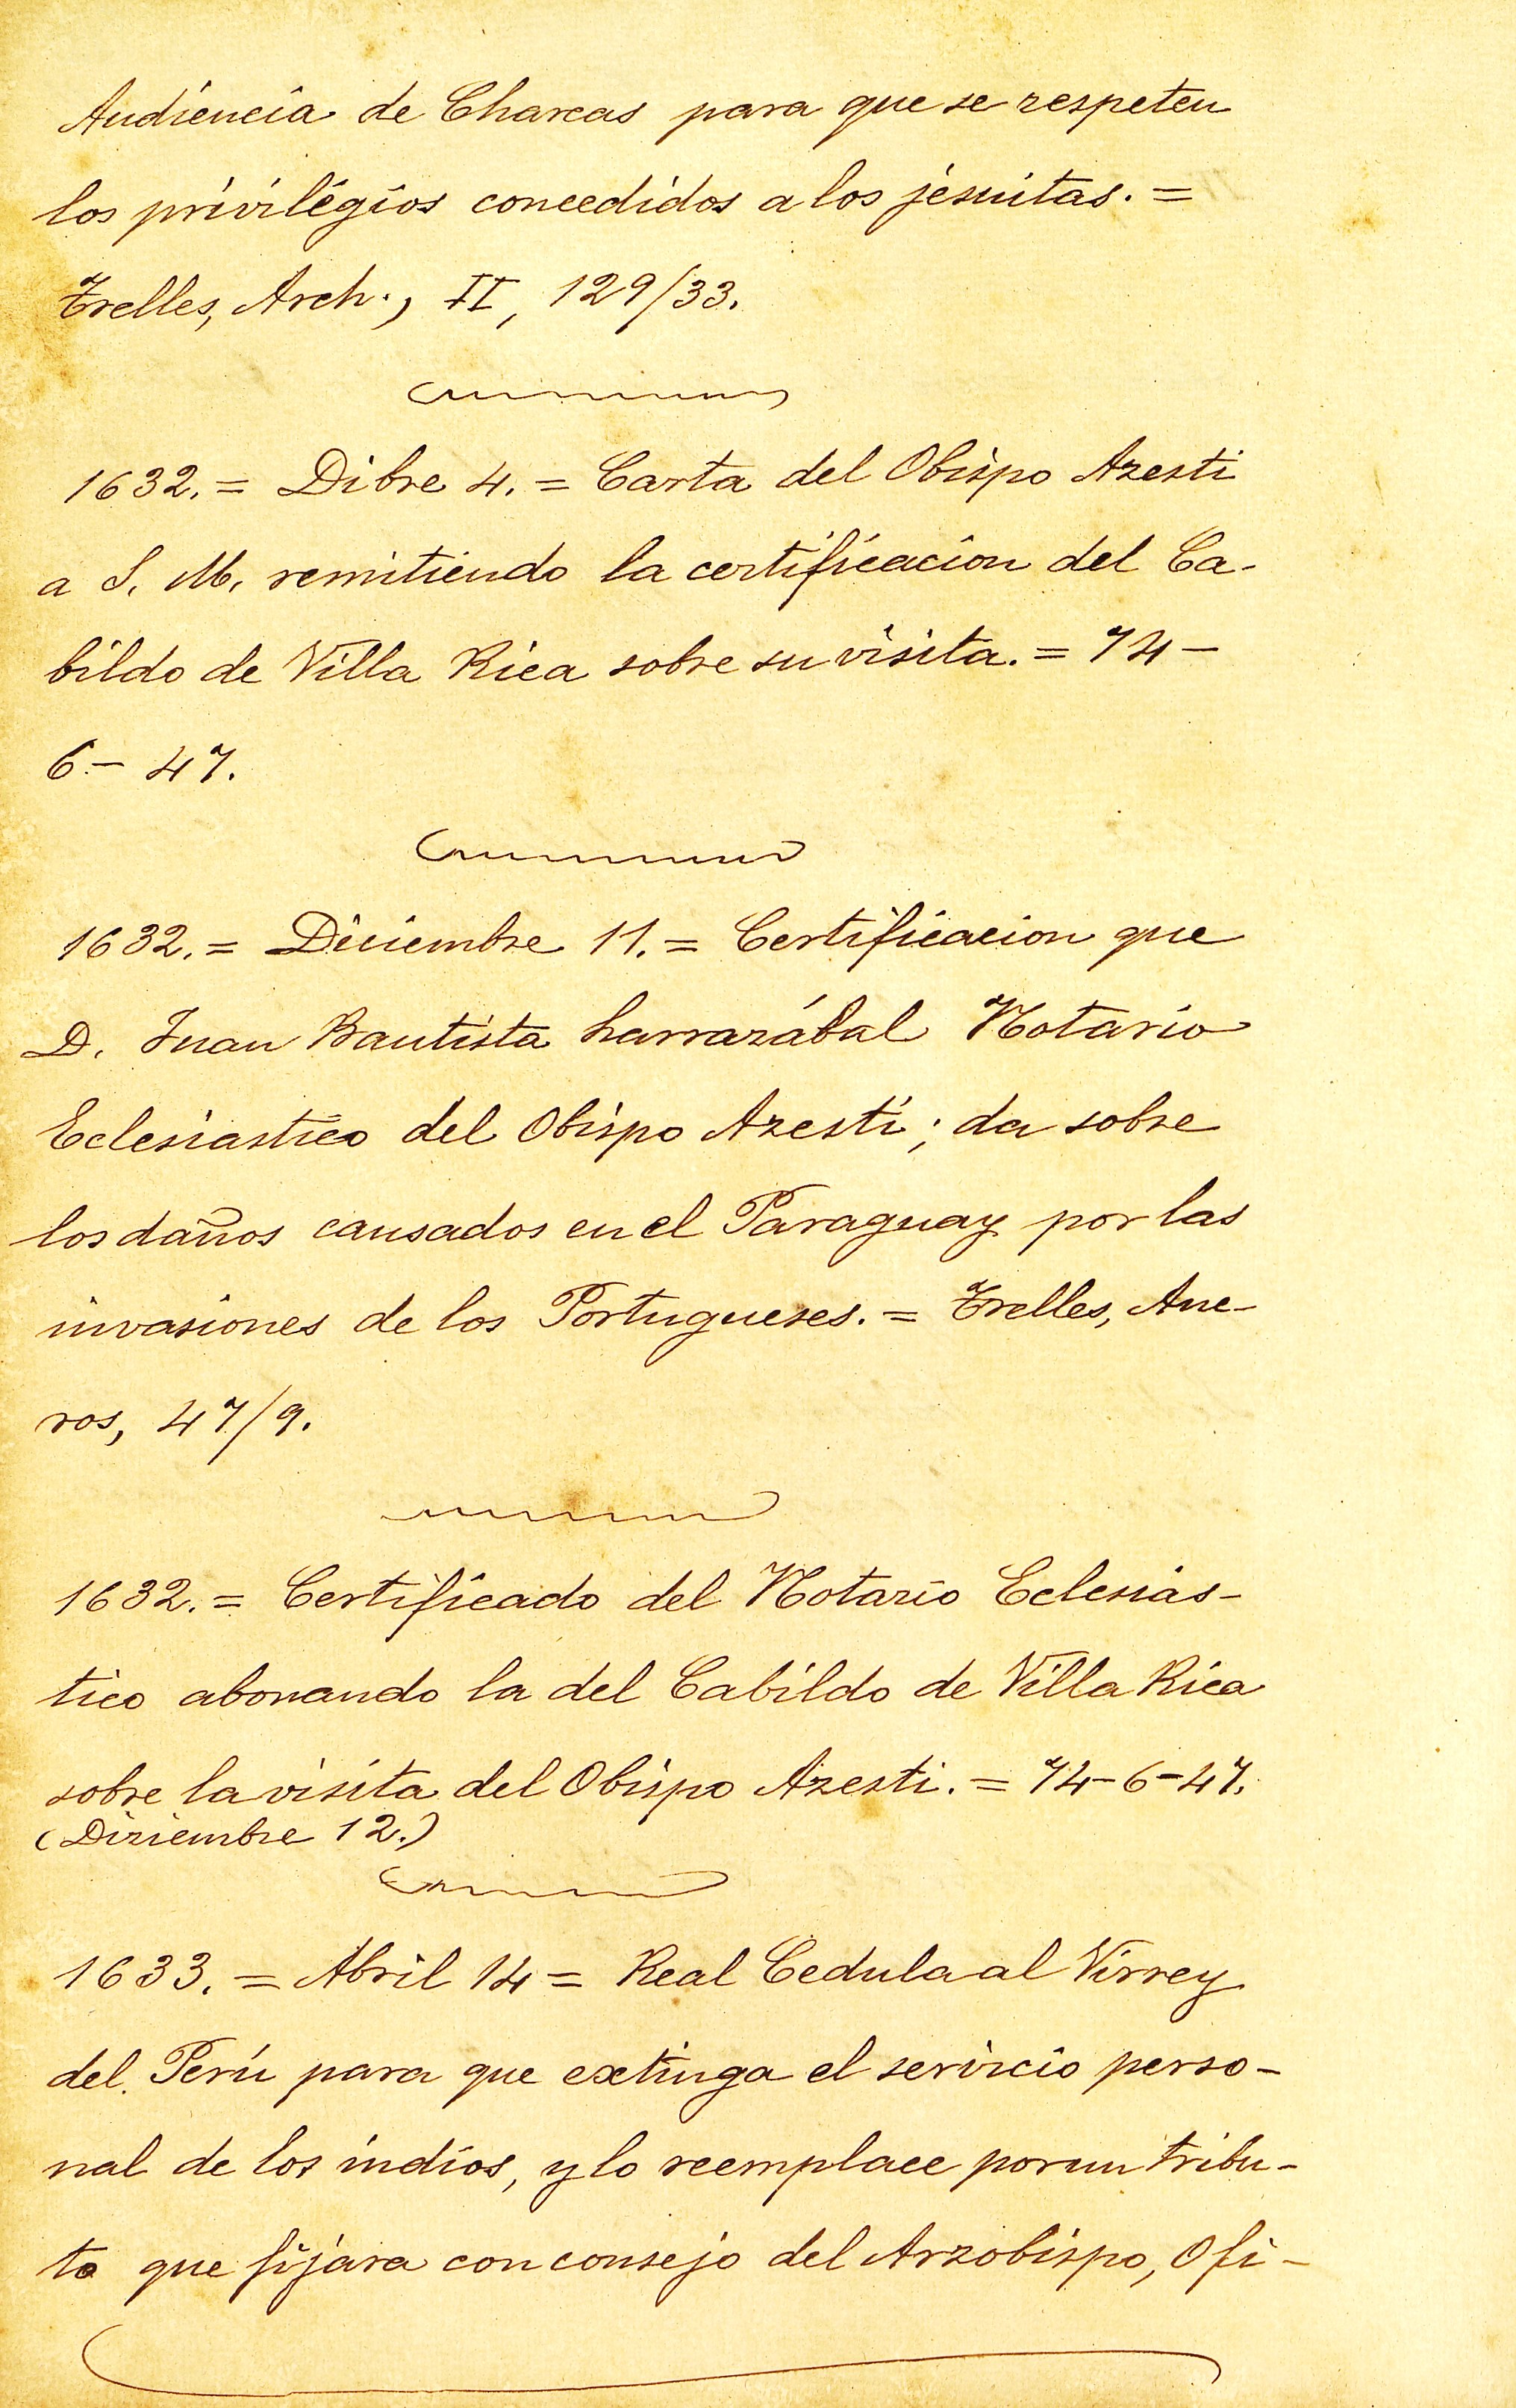 Audiencia de Charcas para que se respeten
los privilégios concedidos a los jesuitas. =
Trelles, Arch., II, 129/33.
1632. = Dibre 4. = Carta del Obispo Azesti
a S. M. remitiendo la certificacion del Ca-
bildo de Villa Rica sobre su visita. = 74-
6- 47.
1632. = Diciembre 11. = Certificacion que
D. Juan Bautista Larrazábal Notario
Eclesiastico del Obispo Azesti; da sobre
los daños causados en el Paraguay por las
invasiones de los Portugueses. = Trelles, Ane-
ros, 47/9.
1632. = Certificado del Notario Eclesias-
tico abonando la del Cabildo de Villa Rica
sobre la visita del Obispo Azesti. = 74-6-47.
(Diziembre 12.)
1633. = Abril 14 = Real Cedula al Virrey
del Perú para que extinga el servicio perso-
nal de los indios, y lo reemplace por un tribu-
to que fijara con consejo del Arzobispo, Ofi-